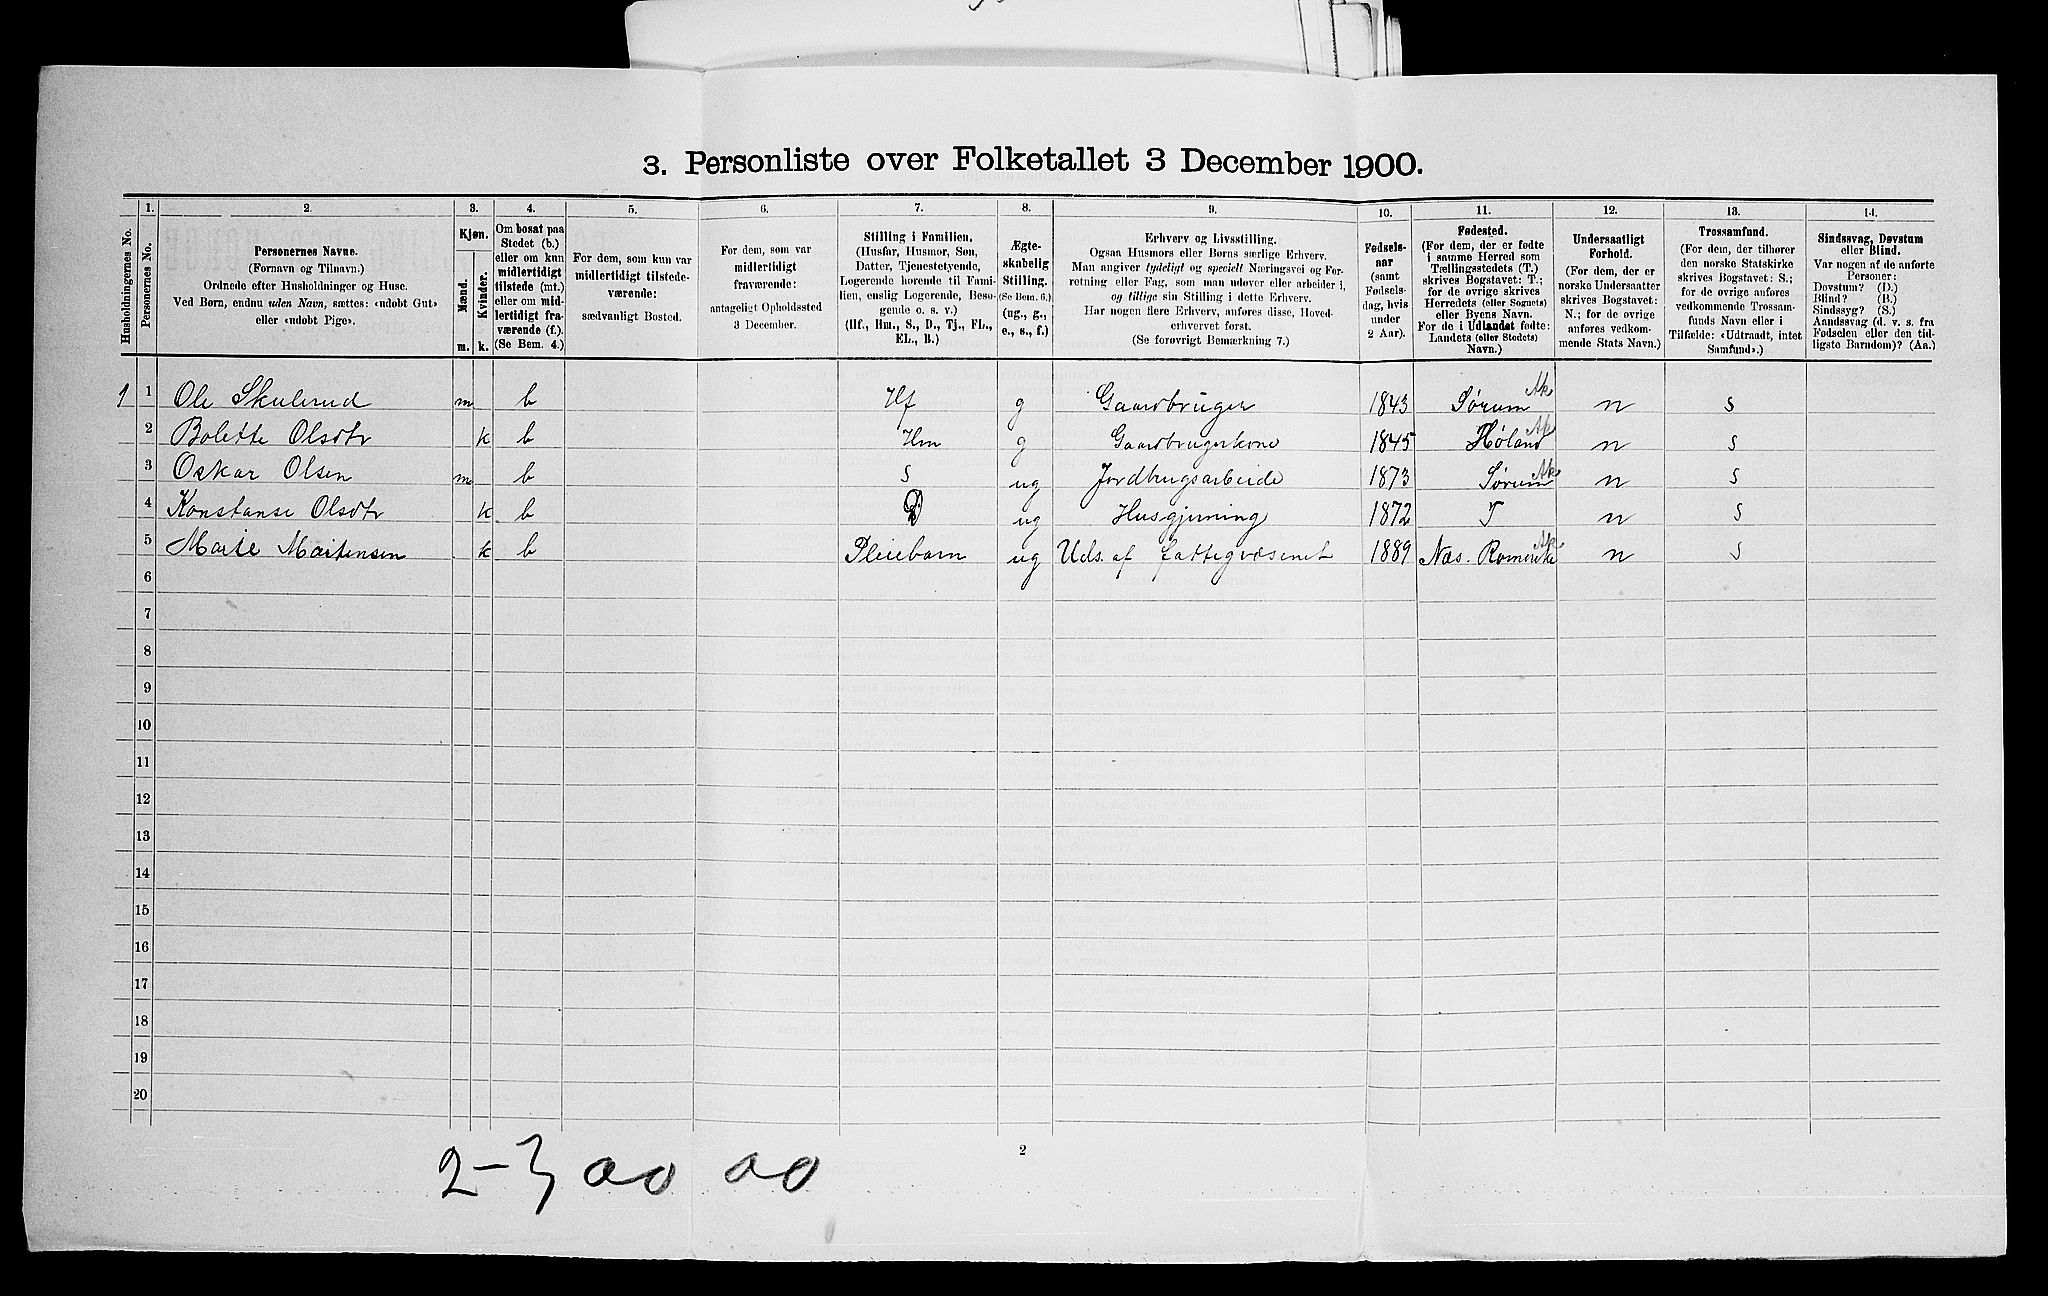 3. Personliste over Folketallet 3 December 1900.
Husholdningernes No.
1.
Personernes No.
2.
Personernes Navne.
(Fornavn og Tilnavn.)
Ordnede efter Husholdninger og Huse.
Ved Børn, endnu uden Navn, sættes: «udøbt Gut»
eller «udøbt Pige».
3.
Kjøn.
Mænd.
Kvinder.
m.
k.
4.
Om bosat paa
Stedet (b.)
eller om kun
midlertidigt
tilstede (mt.)
eller om mid-
lertidigt fra-
værende (f.)
(Se Bem. 4.)
5.
For dem, som kun var
midlertidigt tilstede-
værende:
sædvanligt Bosted.
6.
For dem, som var
midlertidigt
fraværende:
antageligt Opholdssted
3 December.
7.
Stilling i Familien.
(Husfar, Husmor, Søn,
Datter, Tjenestetyende,
Logerende hørende til Fami-
lien, enslig Logerende, Besø-
gende o. s. v.)
(Hf., Hm., S., D., Tj., FL.,
EL., B.)
8.
Ægte-
skabelig
Stilling.
(Se Bem. 6.)
(ug., g.,
e., s., f.)
9.
Erhverv og Livsstilling.
Ogsaa Husmors eller Børns særlige Erhverv.
Man angiver tydeligt og specielt Næringsvei og For-
retning eller Fag, som man udøver eller arbeider i,
og tillige sin Stilling i dette Erhverv.
Har nogen flere Erhverv, anføres disse, Hoved-
erhvervet først.
(Se forøvrigt Bemærkning 7.)
10.
Fødsels-
aar
(samt
Fødsels-
dag, hvis
under
2 Aar).
11.
Fødested.
(For dem, der er fødte
i samme Herred som
Tællingsstedets (T.)
skrives Bogstavet: T.;
for de øvrige skrives
Herredets (eller Sognets)
eller Byens Navn.
For de i Udlandet fødte:
Landets (eller Stedets)
Navn.)
12.
Undersaatligt
Forhold.
(For dem, der er
norske Undersaatter
skrives Bogstavet:
N.; for de øvrige
anføres vedkom-
mende Stats Navn.)
13.
Trossamfund.
(For dem, der tilhører
den norske Statskirke
skrives Bogstavet: S.;
for de øvrige anføres
vedkommende Trossam-
funds Navn eller i
Tilfælde: «Udtraadt, intet
Samfund».)
14.
Sindssvag, Døvstum
eller Blind.
Var nogen af de anførte
Personer:
Døvstum? (D.)
Blind? (B.)
Sindssyg? (S.)
Aandssvag (d. v. s. fra
Fødselen eller den tid-
ligste Barndom)? (Aa.)
1 1 Ole Skulerud m b Hf g Gaardbruger 1843 Sørum Ak n s
2 Bolette Olsdtr k b Hm g Gaardbrugerkone 1845 Høland Ak n s
3 Oskar Olsen m b s ug Jordbrugsarbeide 1873 Sørum Ak n s
4 Konstanse Olsdtr k b D ug Husgjerning 1872 T n s
5 Marte Martensen k b Pleiebarn ug Uds. af fattigvæsenet 1889 Næs. Romerike Ak n s
6
7
8
9
10
11
12
13
14
15
16
17
18
19
20
2
2-3 00 00